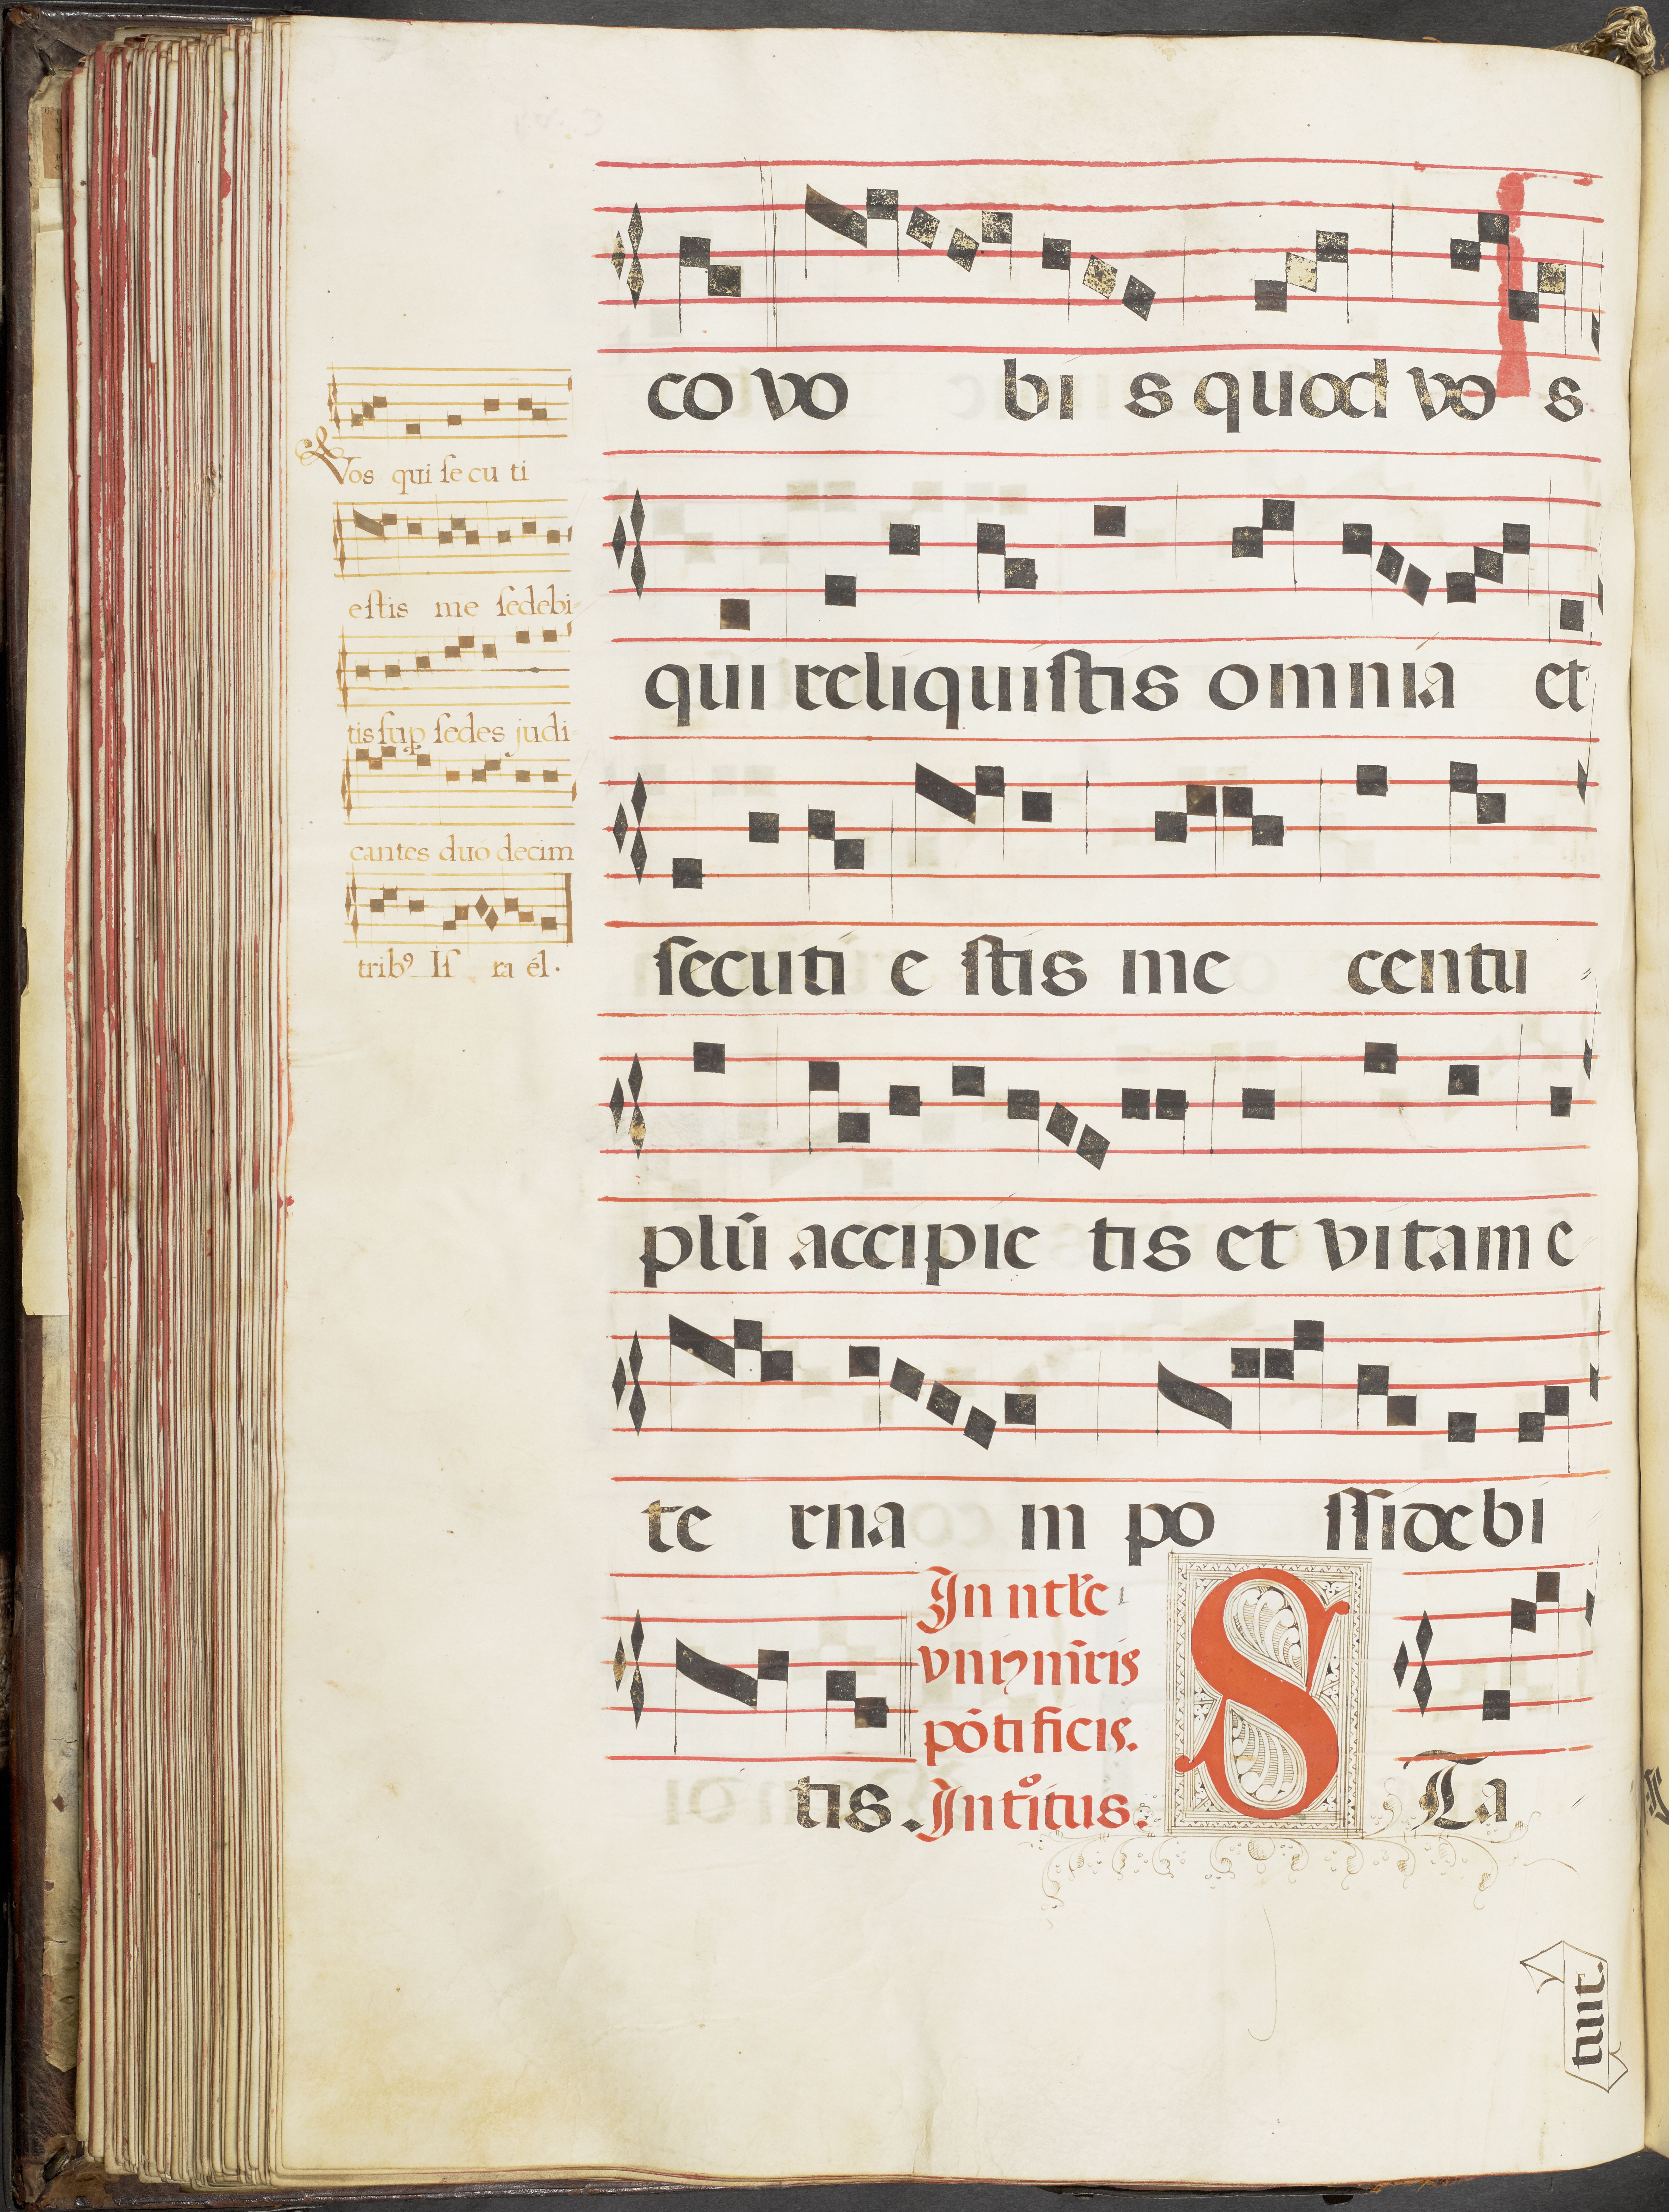 co vo bi s quod vo s
qui reliquistis omnia et
secuti e stis me centu
plū accipie tis et vitam e
te rna m po ssidebi
tis.
In ntłe
vniꝰ mr̄is
pōtificis.
Introitus.
S Ta
tuit.
Vos qui secu ti
estis me sedebi
tis sup sedes judi
cantes duo decim
tribꝰ Is ra él.